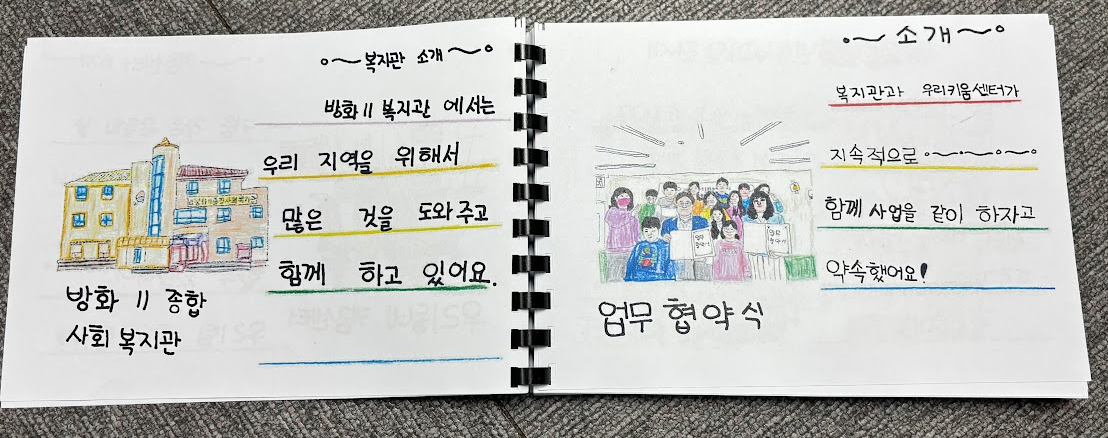 복지관 소개
방화 11 복지관 에서는
우리 지역을 위해서
많은 것을 도와주고
함께 하고 있어요.
방화 11 종합
사회 복지관
소개
복지관과 우리키움센터가
지속적으로
함께 사업을 같이 하자고
약속했어요!
업무
협약서
업무
협약서
업무 협약식